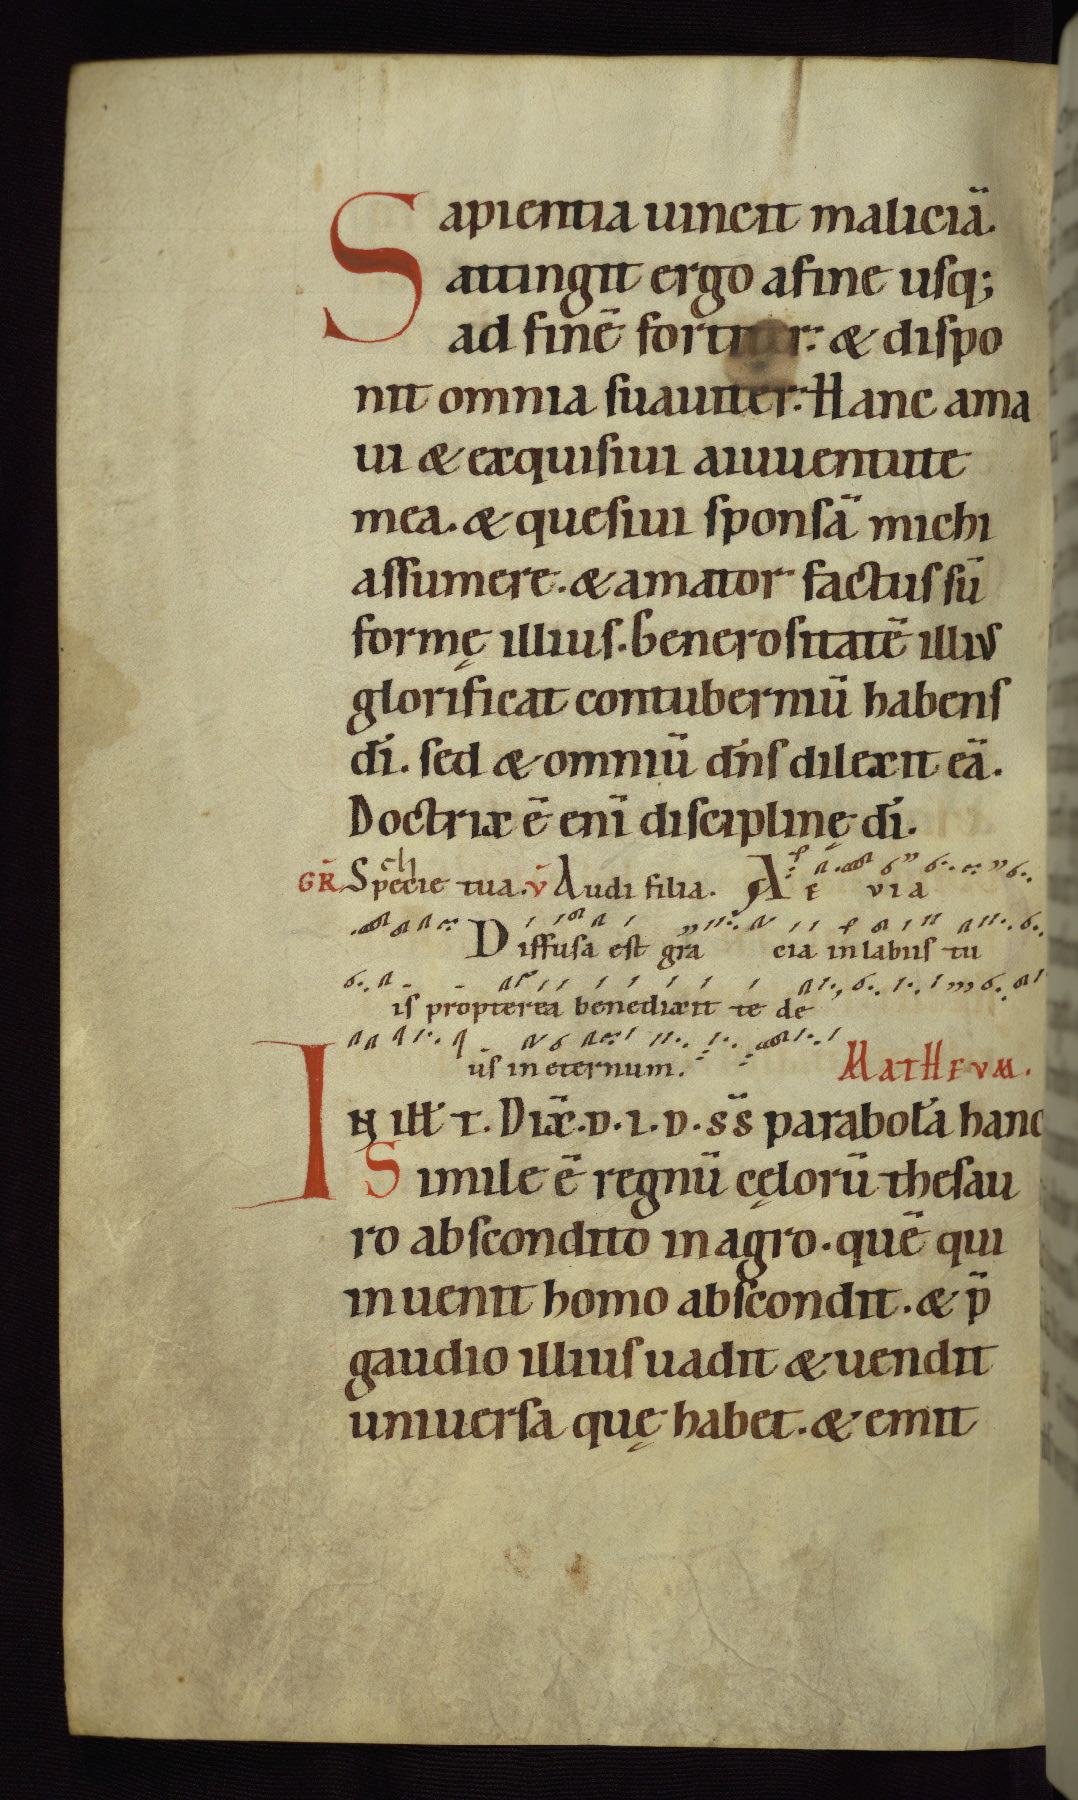 Sapientia uincit maliciā.
attingit ergo afine usq;
ad finē fortiter: & dispo
nit omnia suauiter: Hanc ama
ui & exquisiui aiuuentute
mea. & quesiui sponsā michi
assumere. & amator factus sū
formę illius. Generositatē illius
glorificat contuberniū habens
dī. sed & omniū dn̄s dilexit eā.
Doctrix ē enī disciplinę dī.
GR̄ Specie tua. v̄ Audi filia. A E VIA
Diffusa est gra cia in labiis tu
is propterea benedixit te de
us in eternum. MATHEVM.
IN ill̄ T. Dix̄. D. I. D. s̄s̄ parabol̄a hanc
Simile ē regnū cęlorū thesau
ro abscondito in agro. quē qui
inuenit homo abscondit. & p̄
gaudio illius uadit & uendit
uniuersa quę habet. & emit